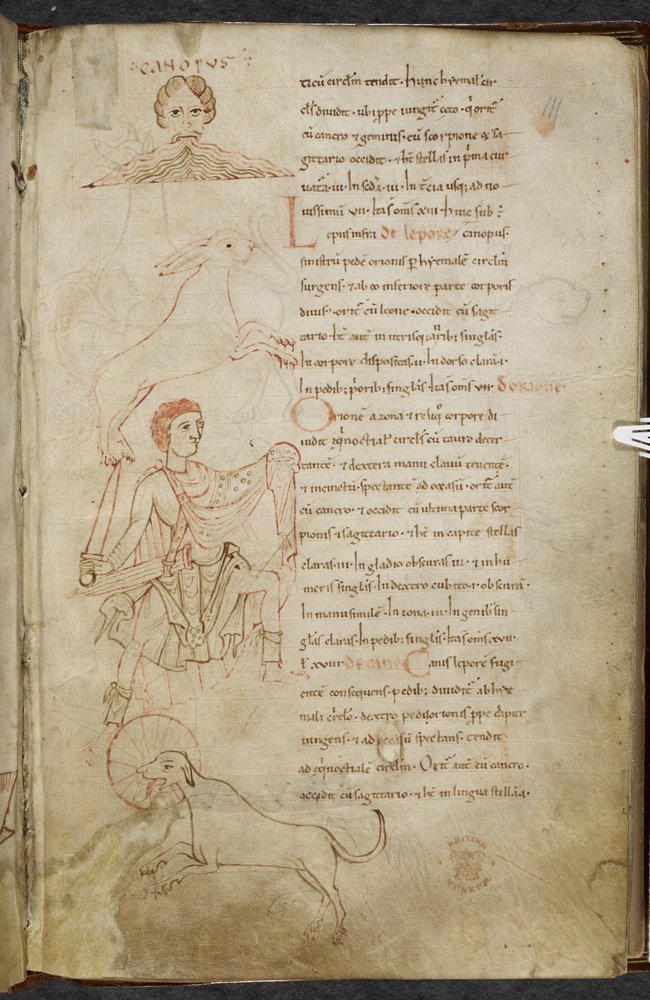 CANOPUS
ticū circl̄m tendit · hunc hyemal cir
cl̄s diuidit · ubi ꝓpe iungit ceto · q̄ orit̄
cū cancro & geminis · cū scorpione & sa
gittario occidit · & ht̄ stellas in p̄ma cur
uat̄a · ui · In sed̄a · iii · In t̄cia usq; ad no
uissimū uii · Itas om̄s xiii · hunc sub
Lepus infra De lepore canopus
sinistrū pedē orionis p̱ hyemalē circl̄m
surgens · & ab eo inferiore parte corporis
diuis · orit̄ cū leone · occidit cū sagit
tario · ht̄ aut̄ in utrisq; aurib; singlas ·
In corpore dispositas · ii · In dorso clarā · i ·
In pedib; p̄orib; singl̄as · Itas om̄s uii · De orione
Orione a zona & reliq̊ corpore di
uidit eq̄noctial circl̄s cū tauro decer
tantē · & dextera manu clauū tenentē ·
& spectantē ad occasū · orit̄ aut̄
cū cancro · & occidit cū ultima parte scor
pionis & sagittario · & ht̄ in capite stellas
claras · iii · In gladio obscuras iii · & in hu
meris singl̄s · In dextro cubito · i · obscurā ·
In manu similē · In zona · iii · In genib; sin
gl̄as claras · In pedib; singl̄s · Itas om̄s xuii ·
ł xuiii De cane Canis leporē fugi
entē consequens · pedib; diuidit̄ ab hye
mali circlo · dextro pedi orionis ꝓpe caput
iungens · & ad occasū spectans · tendit
ad eq̄noctialē circl̄m · Orit̄ aut̄ cū cancro ·
occidit cū sagittario · & ht̄ in lingua stellā · i ·
BRITISH
MUSEUM